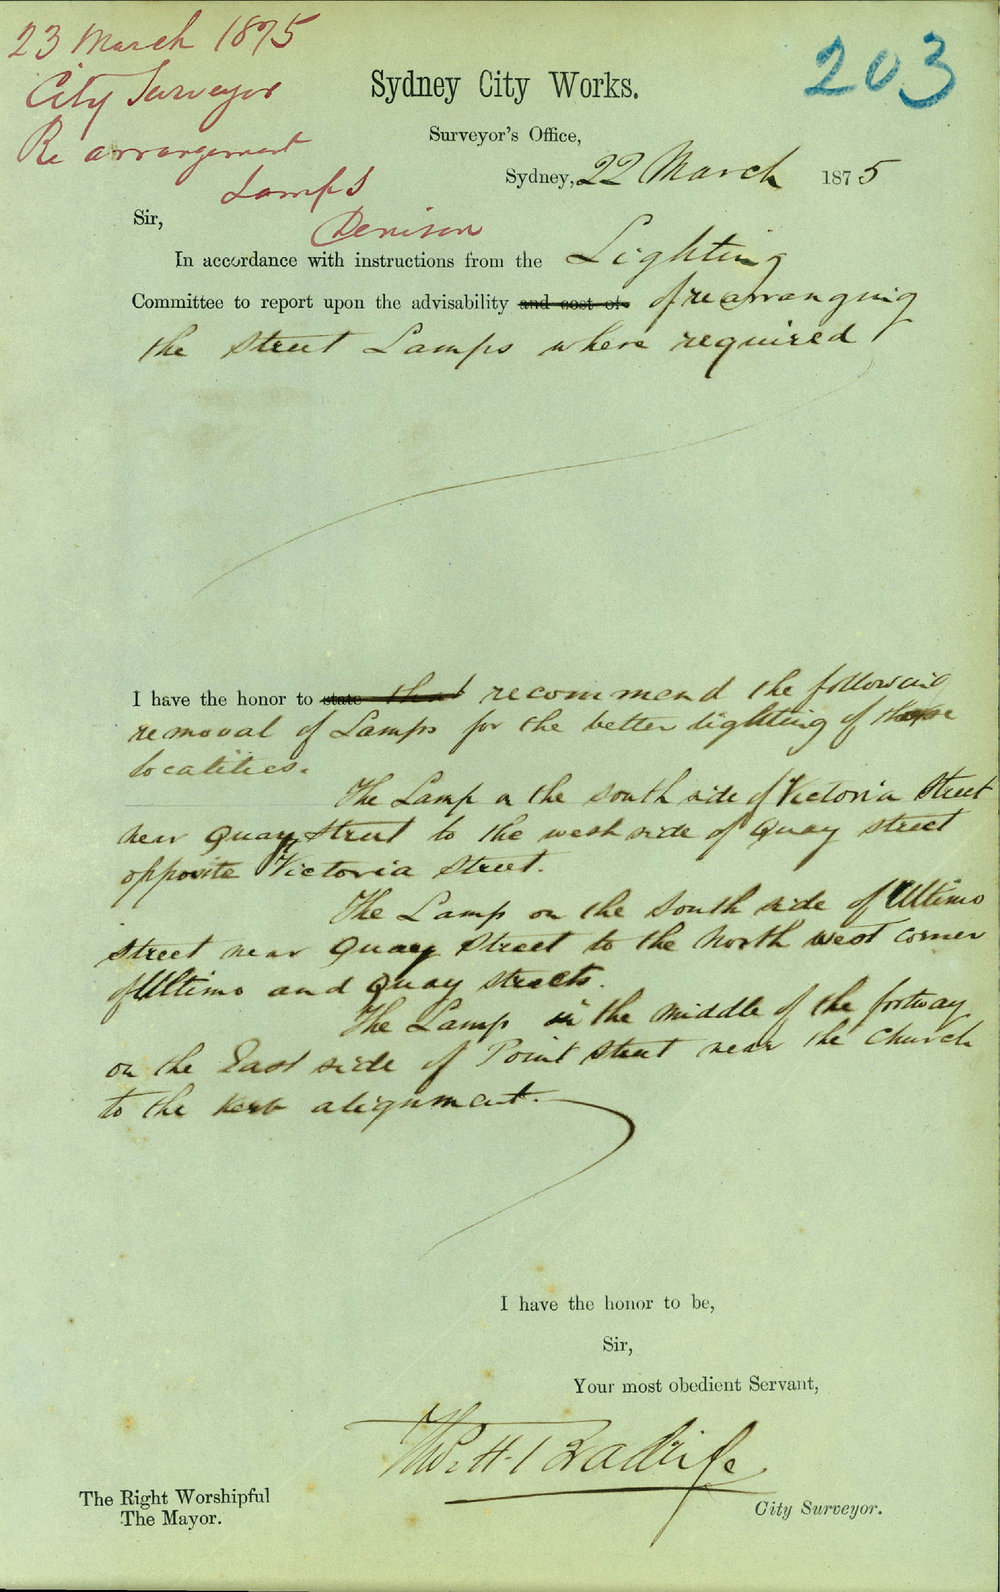 23 March 1875
City Surveyor
Re arrangement
Lamps
Denison
203
Sydney City Works.
Surveyor's Office,
Sydney, 22 March 1875
Sir,
In accordance with instructions from the Lighting
Committee to report upon the advisability and cost of of rearranging
the Street Lamps where required
I have the honor to state that recommend the following
removal of Lamps for the better lighting of those
localities.
The Lamp on the south side of Victoria Street
near Quay Street to the west side of Quay street
opposite Victoria Street.
The Lamp on the South side of Ultimo
Street near Quay Street to the North west corner
of Ultimo and Quay streets.
The Lamp in the middle of the footway
on the East side of Point Street near the Church
to the kerb alignment.
I have the honor to be,
Sir,
Your most obedient Servant,
City Surveyor.
The Right Worshipful
The Mayor.